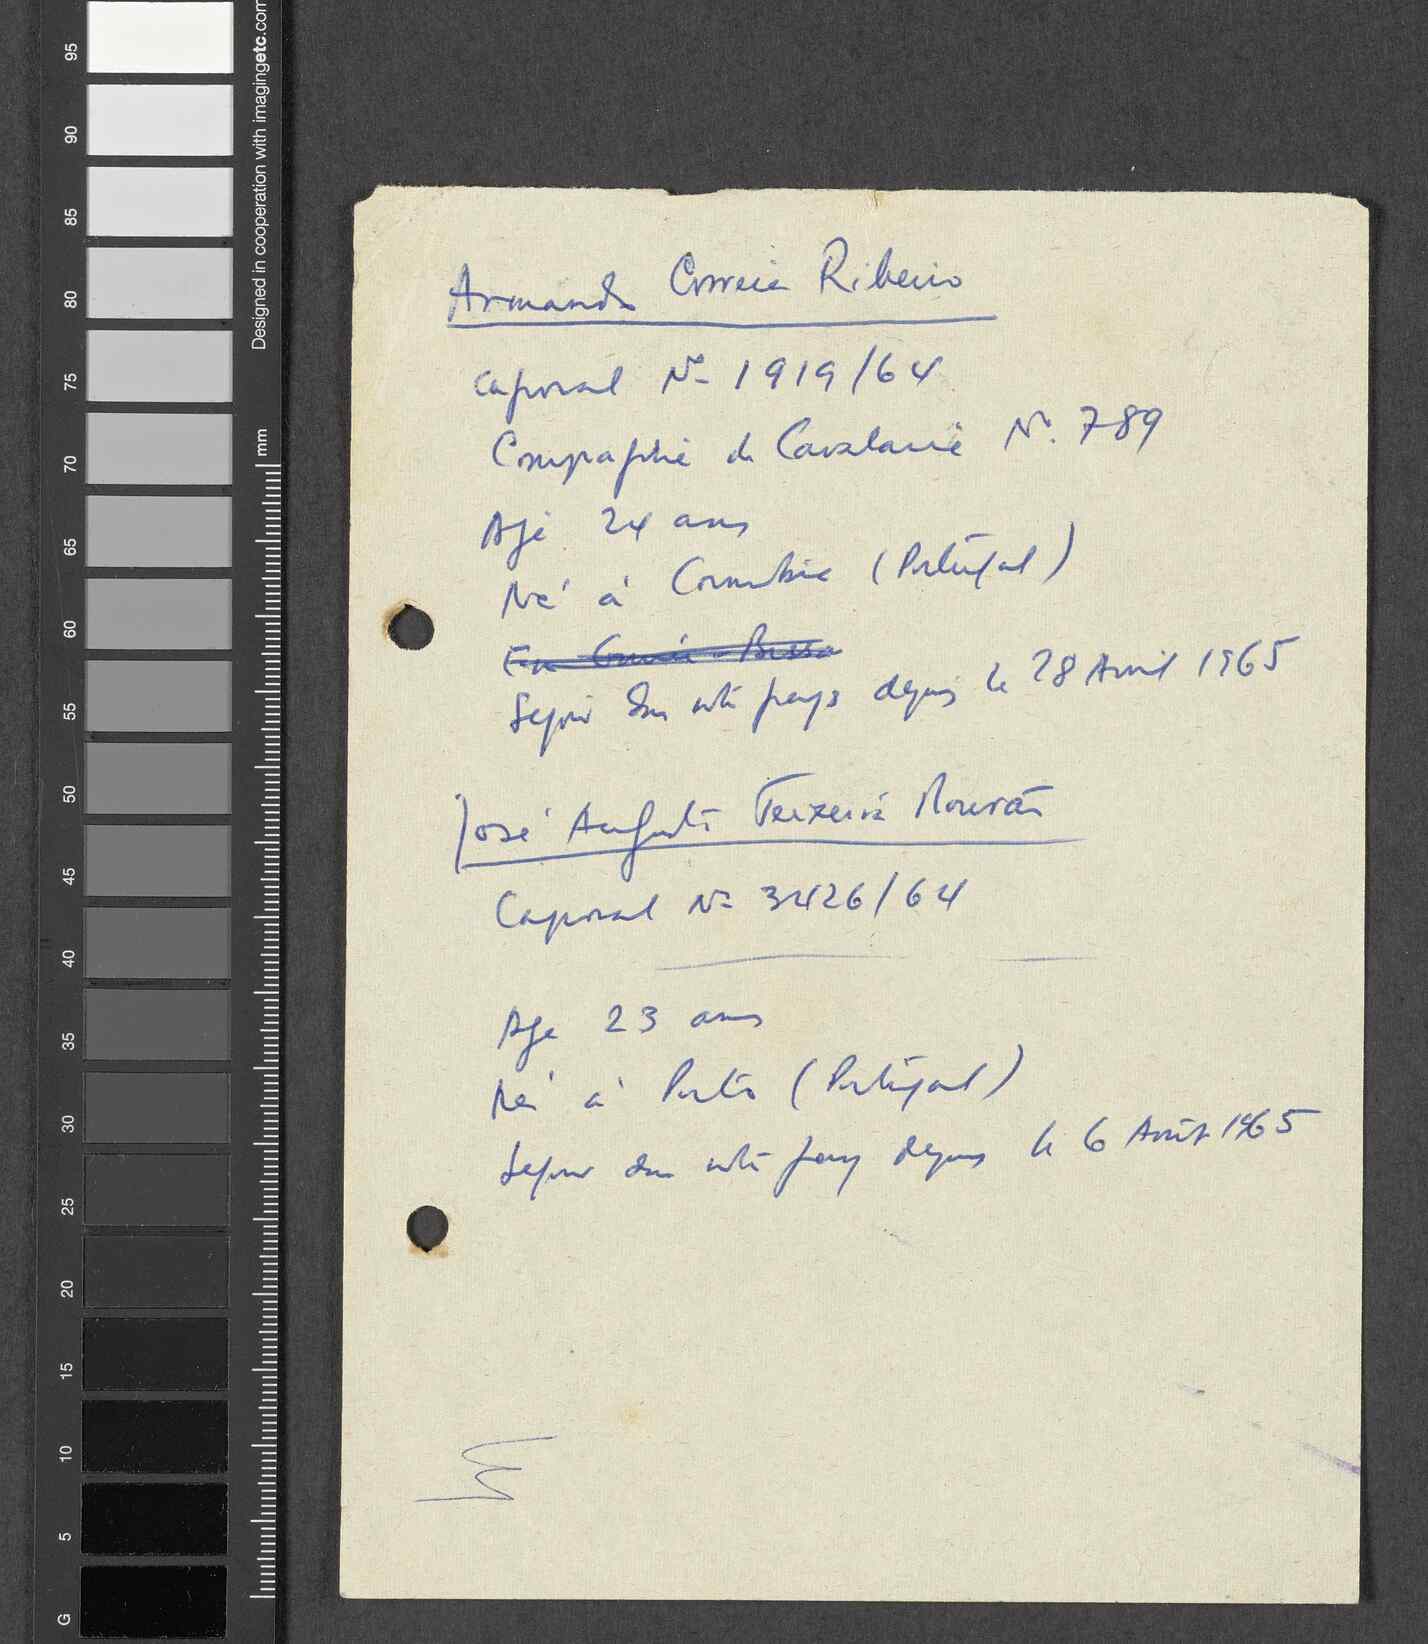 95
90
85
80
75
70
65
60
55
50
45
40
35
30
25
20
15
10
5
G
Designed in cooperation with imagingetc.com
mm
Armando Correia Ribeiro
Caporal Nº 1919/64
de Cavalarie Nº. 789
Age 24 ans
Né à (Portugal)
En Guiné-Bissa
Sejour dans notre pays depuis le 28 Avril 1965
José Augusto Teixeira Mourão
Caporal Nº 3426/64
Age 23 ans
Né à Porto (Portugal)
Sejour dans notre pays depuis le 6 Août 1965